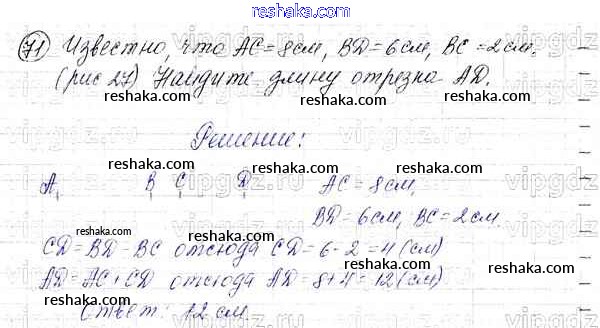 reshaka.com
71 Известно, что AC = 8см, BD = 6см, BC = 2см.
(рис 27) Найдите длину отрезка AD.
reshaka.com reshaka.com reshaka.com
Решение:
reshaka.com reshaka.com reshaka.com
A B C D AC = 8см,
BD = 6см, BC = 2см.
reshaka.com reshaka.com
CD = BD - BC отсюда CD = 6 - 2 = 4 (см)
AD = AC + CD отсюда AD = 8 + 4 = 12 (см)
reshaka.com reshaka.com
Ответ: 12 см.
reshaka.com